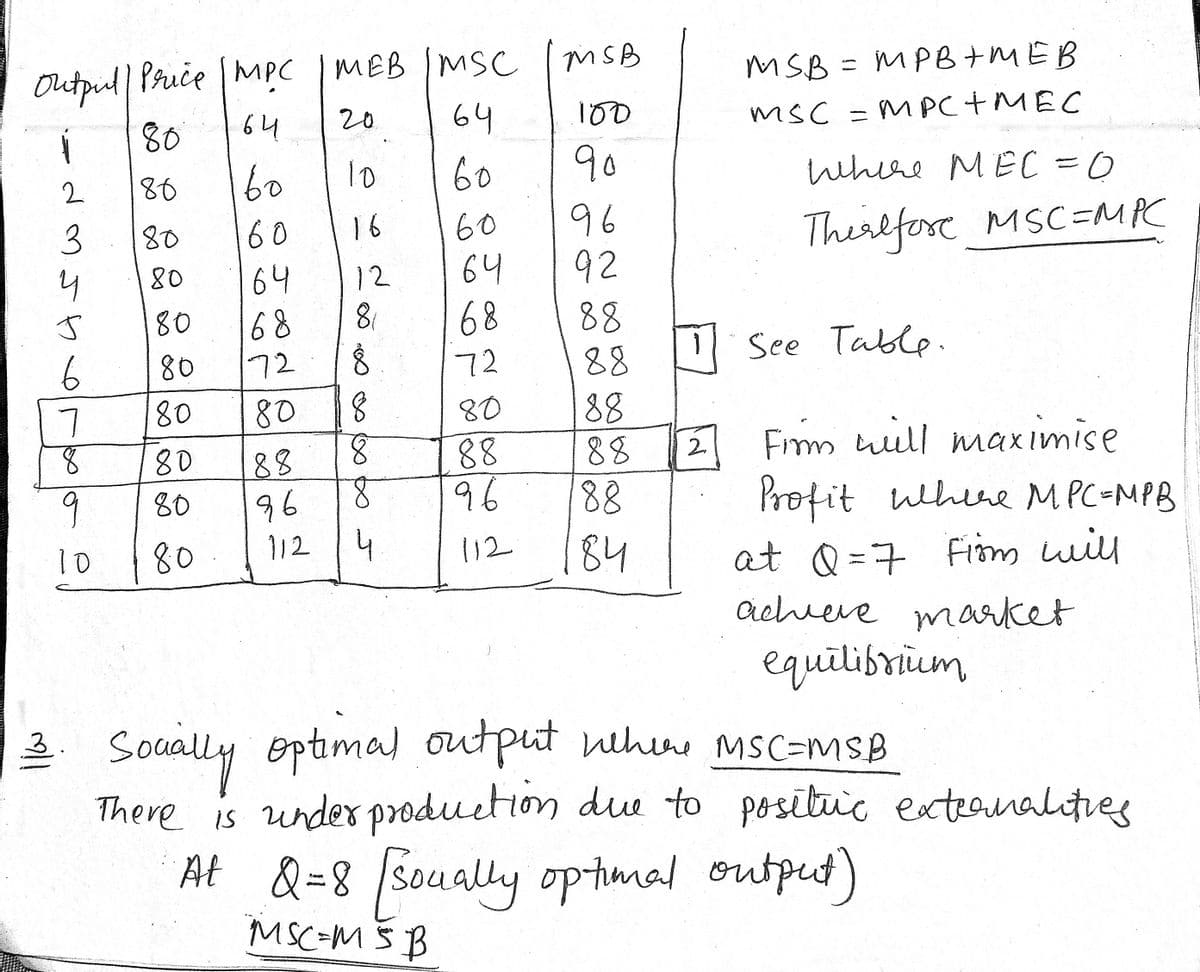 Output | Price | MPC | MEB | MSC | MSB
1 | 80 | 64 | 20 | 64 | 100
2 | 80 | 60 | 10 | 60 | 90
3 | 80 | 60 | 16 | 60 | 96
4 | 80 | 64 | 12 | 64 | 92
5 | 80 | 68 | 8 | 68 | 88
6 | 80 | 72 | 8 | 72 | 88
7 | 80 | 80 | 8 | 80 | 88
8 | 80 | 88 | 8 | 88 | 88
9 | 80 | 96 | 8 | 96 | 88
10 | 80 | 112 | 4 | 112 | 84
MSB = MPB+MEB
MSC = MPC+MEC
Where MEC = 0
Therefore MSC=MPC
1 See Table.
2 Firm will maximise
Profit where MPC=MPB
at Q=7 Firm will
achieve market
equilibrium
3. Socially optimal output where MSC=MSB
There is underproduction due to positive externalities
At Q=8 [Socially optimal output)
MSC=MSB